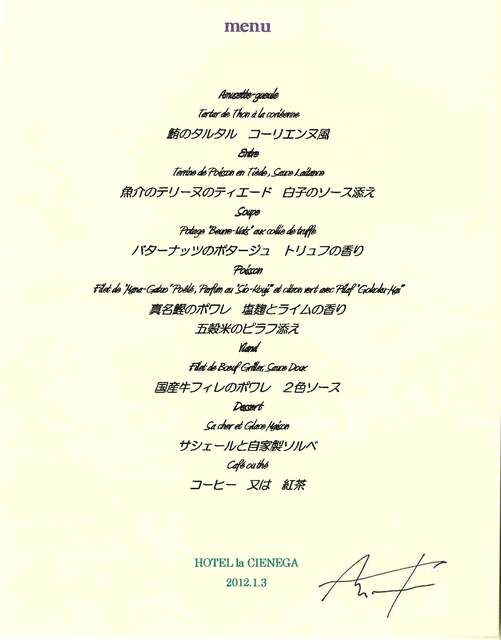 menu
Amusette-gueule
Tartar de Thon à la coréenne
鮪のタルタル コーリエンヌ風
Entre
Terrine de Poisson en Tiède, Sauce Laitance
魚介のテリーヌのティエード 白子のソース添え
Soupe
Potage "Beurre-Nuts" aux coulie de truffe
バターナッツのポタージュ トリュフの香り
Poisson
Filet de "Mana-Gatuo" Poêlé, Parfum au "Sio-Kouji" et citron vert avec Pilaf "Gokoku-Mai"
真名鰹のポワレ 塩麹とライムの香り
五穀米のピラフ添え
Viand
Filet de Bœuf Griller, Sauce Doux
国産牛フィレのポワレ 2色ソース
Dessert
Sacher et Glace Maison
サシェールと自家製ソルベ
Café ou thé
コーヒー 又は 紅茶
HOTEL la CIENEGA
2012.1.3